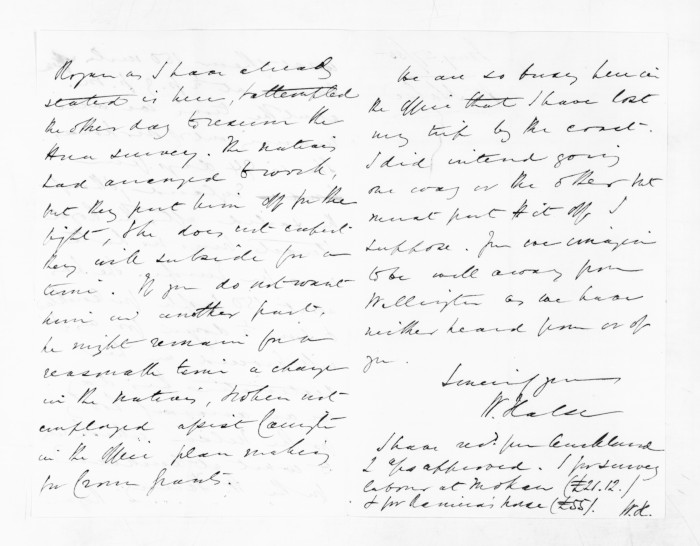 Rogan as I have already
stated is here, & attempted
the other day to resume the
Hua survey. The natives
had arranged to work,
but they put him off for the
fight, & he does not expect
they will subside for a
time. If you do not want
him in another part,
he might remain for a
reasonable time in charge
in the natives, & when not
employed assist Carrington
in the office plan making
for Crown Grants.
We are so busy here in
the office that I have lost
my trip by the coast.
I did intend going
one way or the other but
must put it off, I
suppose. You we imagine
to be well away from
Wellington as we have
neither heard from or of
you.
Sincerely yours
W. Halse
I have recd. per Auckland
2 a/cs approved. 1 for survey
labour at Mokau (£21.12.)
& for house (£55). W.H.